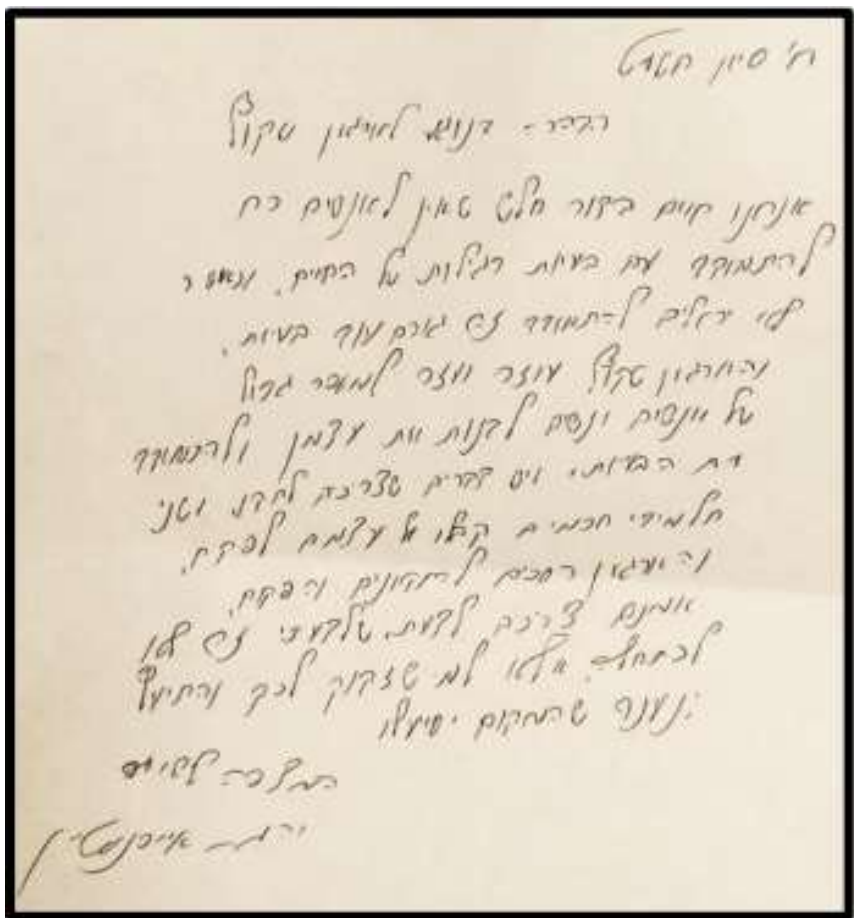 סיון תשע"ט
הבהרה בנוגע לארגון שקוף
אנחנו חיים בדור חלש שאין לאנשים כח
להתמודד עם בעיות רגילות של החיים. וכאשר
לא יכולים להתמודד זה גורם עוד בעיות.
והארגון שקוף עוזר ועזר למספר גדול
של אנשים ונשים לבנות את עצמן ולהתמודד
עם הבעיות. ויש דברים שצריכים לתקן ושני
תלמידי חכמים קבלו על עצמם לפקח.
והארגון הסכים לתיקונים והפקוח.
אומנם צריכים לדעת שלכעדי זה לא
לכתחלה. אלא למי שזקוק לכך והתיעץ
ונענה שהמקום יסייעו
המצפה לישועה
יהודה אייכנשטיין